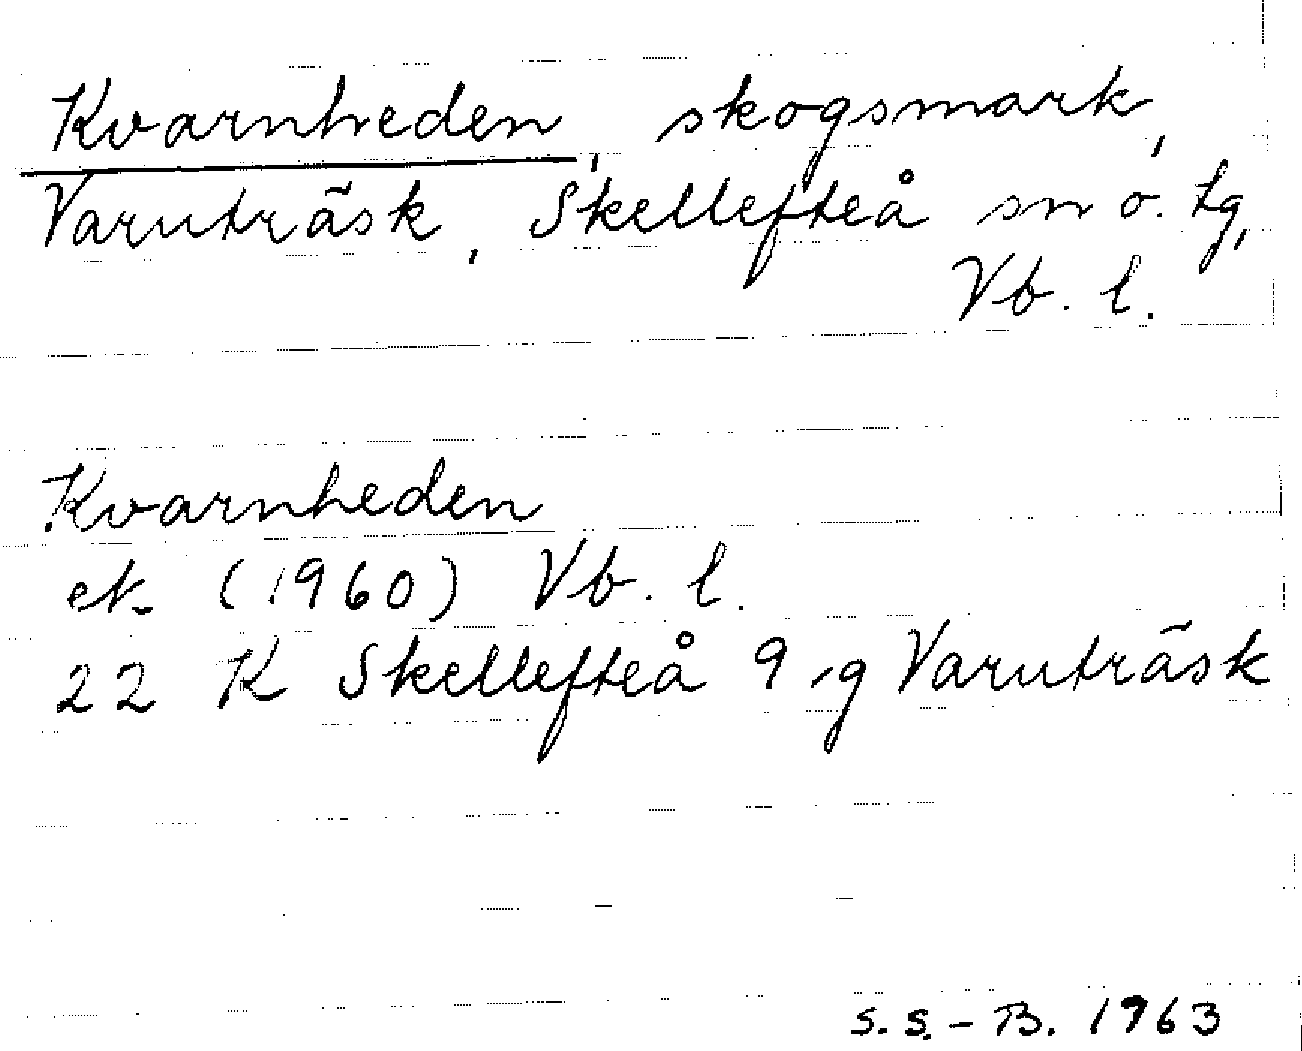 Kvarnheden, skogsmark,
Varuträsk, Skellefteå sn o. tg,
Vb. l.
Kvarnheden
ek. (1960) Vb. l.
22 K Skellefteå 9 ig Varuträsk
S.S.-B. 1963